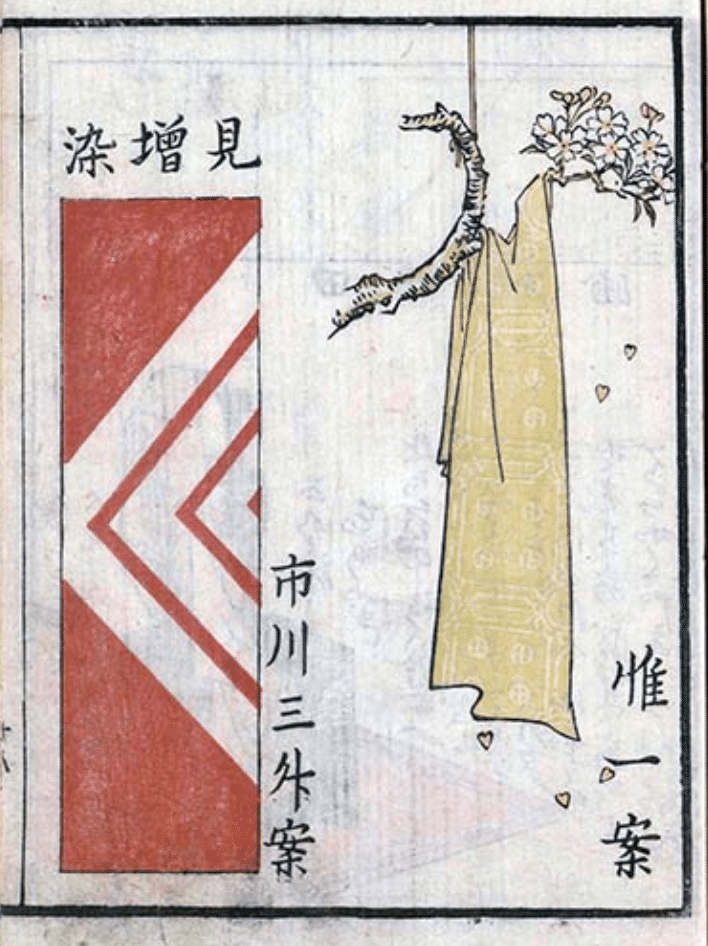 惟一案
見増染
市川三舛案